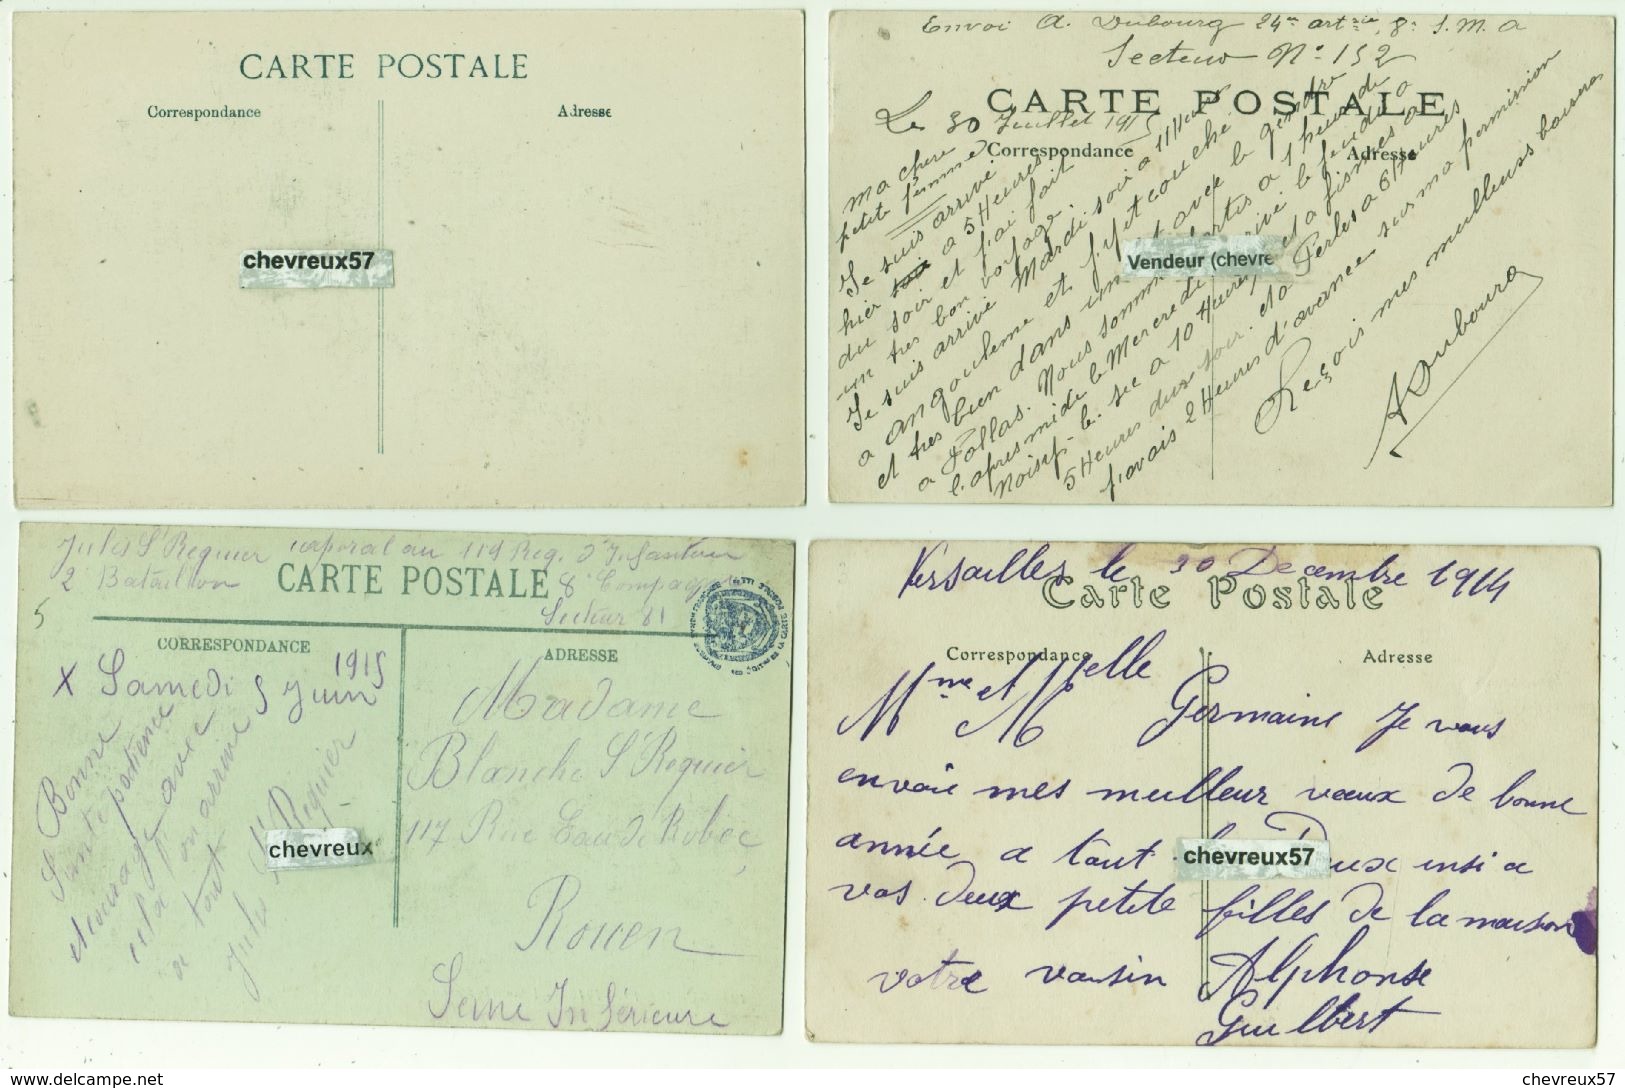 CARTE POSTALE
Correspondance
Adresse
chevreux57
Envoi A. Dubourg 24me artrie, 8e S. M. A
Secteur No 152
CARTE POSTALE
Correspondance
Adresse
Le 30 Juillet 1915
ma chere
petite femme
Je suis arrivé
hier soir a 5 Heures
du soir et j'ai fait
un tres bon voyage.
Je suis arrivé Mardi soir a 11 Heures
a angouleme et j'y et couché
et tres bien dans avec le gendre
a Follas. Nous sommes partis a 1 heure de
l'apres midi le Mercredi arrivé le jeudi a
Noisy-le-sec a 10 Heures, et a fismes a
5 Heures du soir. et a Perles a 6 Heures
j'avais 2 Heures d'avance sur ma permission
Reçois mes meilleurs baisers
ADubourg
Vendeur (chevre
Jules St Requier corporal au 119 Reg. d'Infanterie
2e Bataillon
CARTE POSTALE
8e Compagnie
Secteur 81
5
CORRESPONDANCE
ADRESSE
X Samedi 5 Juin 1915
Bonne
Santé patience
et courage avec
cela on arrive
a tout
Jules St Requier
Madame
Blanche St Requier
117 Rue Eau de Robec
Rouen
Seine Inférieure
chevreux
Versailles le 30 Decembre 1914
Carte Postale
Correspondance
Adresse
Mme et Melle Germaine Je vous
envoie mes meilleur vœux de bonne
année a tout Deux insi a
vos deux petite filles de la maison
votre voisin Alphonse
Guilbert
chevreux57
www.delcampe.net
chevreux57